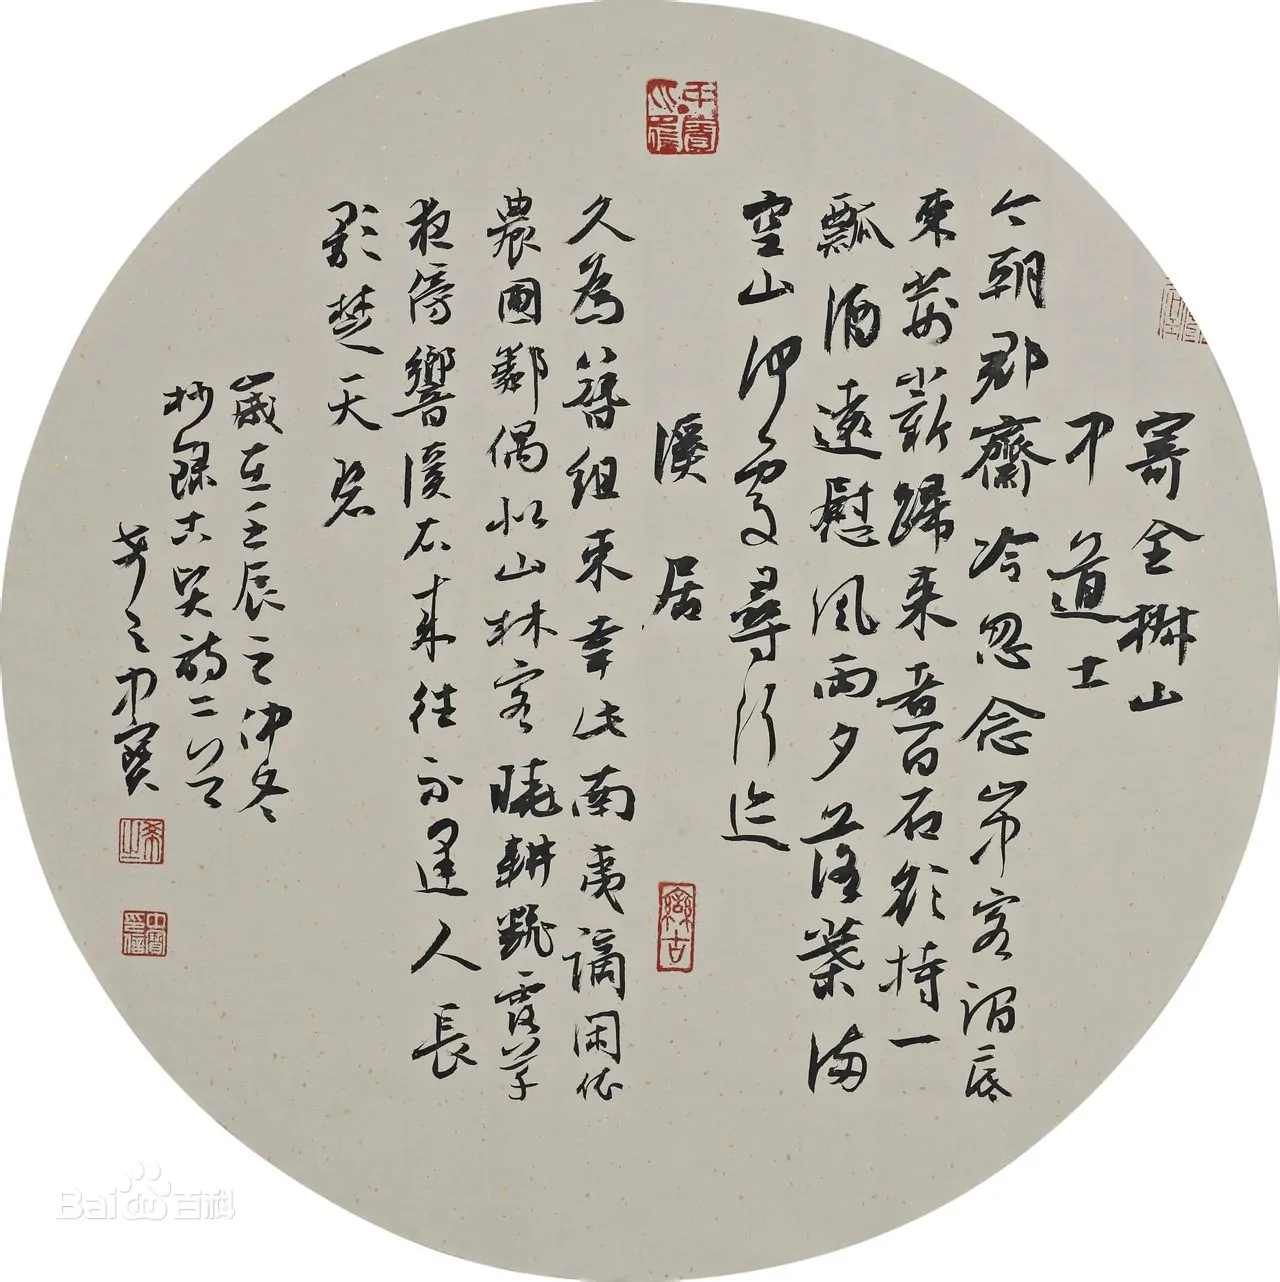 寄全椒山
中道士
今朝郡齋冷忽念山中客澗底
束荊薪歸來煮白石欲持一
瓢酒遠慰風雨夕落葉滿
空山何處尋行迹
溪居
久為簪組束幸此南夷謫閑依
農圃鄰偶似山林客曉耕翻露草
夜傍響溪石來往不逢人長
歌楚天碧
歲在壬辰之仲冬
抄錄古賢詩二首
希之中寶
希之
中寶印信
Bai百科